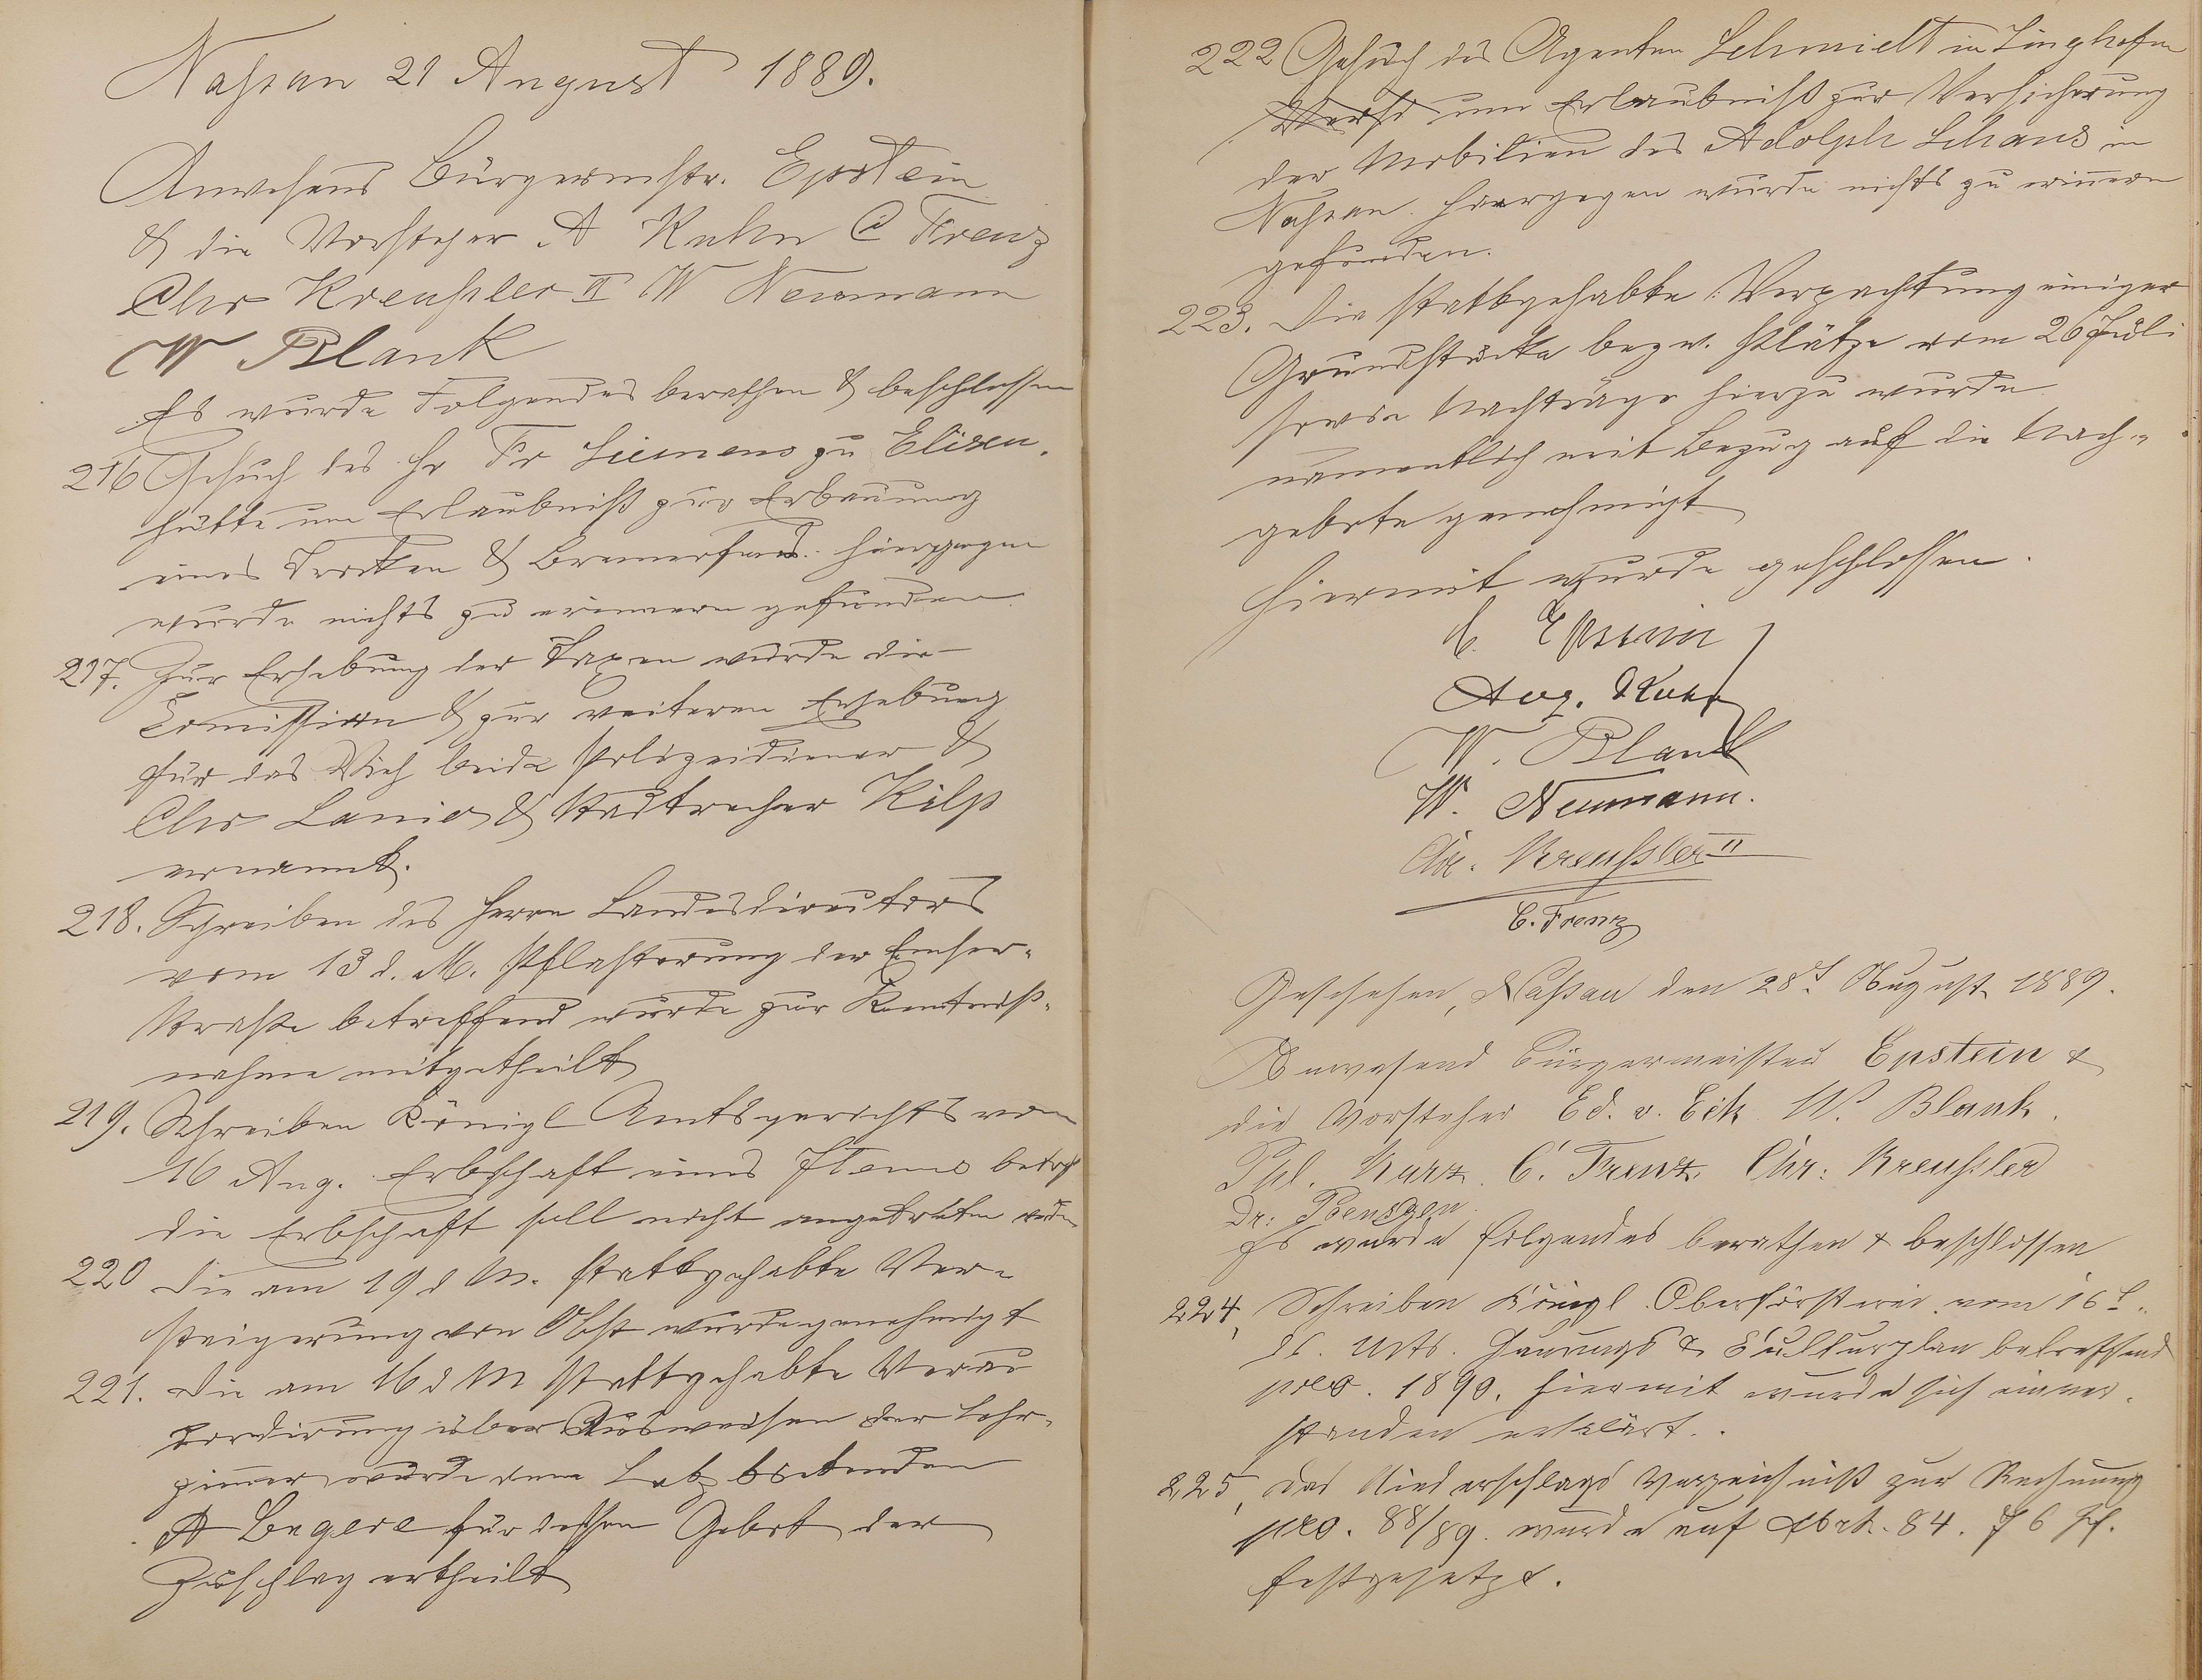 Nassau 21 August 1889.
Anwesend Bürgermstr. Epstein
& die Vorsteher A Kuhn C Frenz
Chr Kreußler II W Neumann
W Blank
Es wurde Folgendes berathen & beschlossen
216 Gesuch des Hr Fr Siemens zu Elisen-
hütte um Erlaubniß zur Erbauung
eines Trocken & Brennofens. Hiergegen
wurde nichts zu erinnern gefunden.
217. Zur Erhebung der Taxen wurde die
Comission & zur weiteren Erhebung
für das Vieh beide Polizeidiener &
Chr Lanio & Stadtrechner Kilp
ernannt.
218. Schreiben des Herrn Landesdirektors
vom 13 d. M. Pflasterung der Emser-
straße betreffend wurde zur Kenntniß-
nahme mitgetheilt
219. Schreiben Königl Amtsgerichts vom
16 Aug. Erbschaft eines betrf
die Erbschaft soll nicht angetreten werden
220 Die am 19 d M. stattgehabte Ver-
steigerung von Obst wurde genehmigt
221. Die am 16 d M stattgehabte Verac-
cordirung über Ausweißen der Lehr-
zimmer wurde dem Letzbietenden
A Begere für dessen Gebot der
Zuschlag ertheilt
222 Gesuch des Agenten Schmidt in Singhofen
um Erlaubniß zur Versicherung
der Mobilien des Adolph Schaus in
Nassau. Hiergegen wurde nichts zu erinnern
gefunden.
223. Die stattgehabte Verpachtung einiger
Grundstücke bezw. Plätze vom 26 Juli
sowie Nachträge hierzu wurde
namentlich mit Bezug auf die Nach-
gebote genehmigt
Hiermit wurde geschlossen.
C. Epstein
Aug. Kuhn
W. Blank
W. Neumann.
Chr. Kreußler II
C. Frenz
Geschehen, Naßau den 28t. August 1889.
Anwesend Bürgermeister Epstein &
die Vorsteher Ed. v. Eck W. Blank.
Phl. Kurz. C. Frenz. Chr: Kreußler
Dr: Poensgen.
Es wurde folgendes berathen & beschlossen
224, Schreiben Königl. Oberförsterei vom 16t.
ds. Mts. Hauungs & Culturplan betreffend
pro. 1890. Hiermit wurde sich einver-
standen erklärt.
225, Das Niederschlags Verzeichniß zur Rechnung
pro. 88/89. wurde auf Mrk. 84. 76 Pf.
festgesetzt.